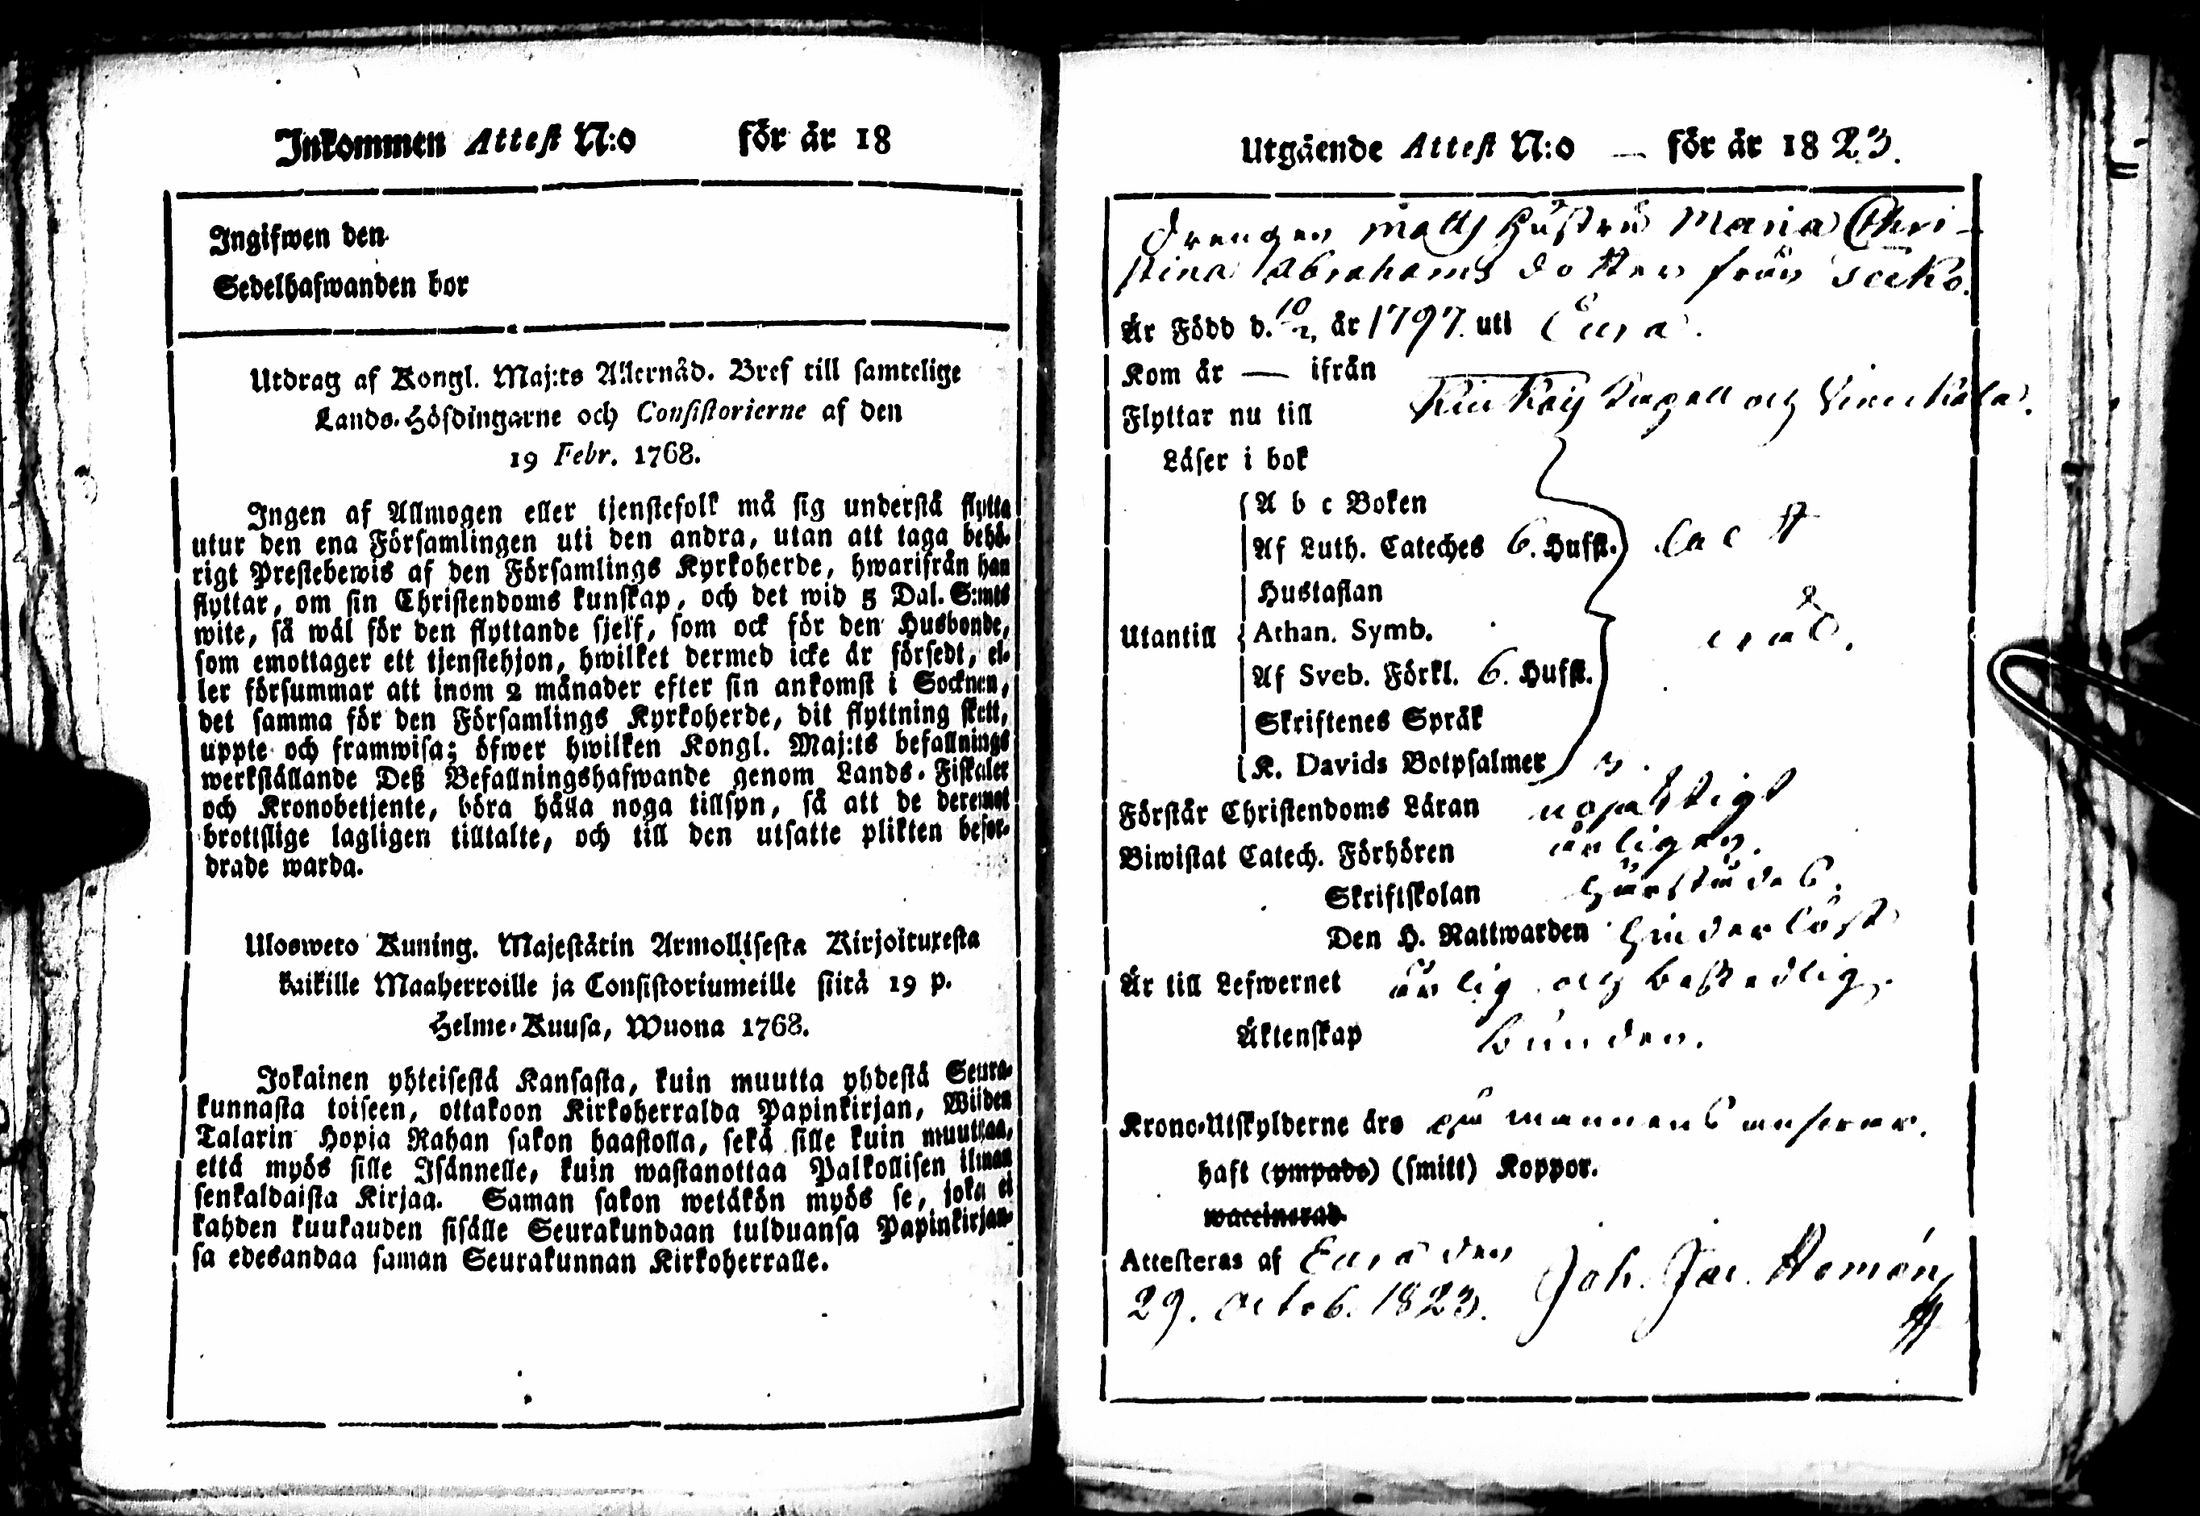 Inkommen Attest N:o för år 18
Ingifwen den
Sedelhafwanden bor
Utdrag af Kongl. Maj:ts Allernåd. Bref till samtelige
Lands-Höfdingarne och Consistorierne af den
19 Febr. 1768.
Ingen af Allmogen eller tjenstefolk må sig understå flytta
utur den ena Församlingen uti den andra, utan att taga behö-
rigt Prestebewis af den Församlings Kyrkoherde, hwarifrån han
flyttar, om sin Christendoms kunskap, och det wid 5 Dal. S:mts
wite, så wäl för den flyttande sjelf, som ock för den Husbonde,
som emottager ett tjenstehjon, hwilket dermed icke är försedt, el-
ler försummar att inom 2 månader efter sin ankomst i Socknen,
det samma för den Församlings Kyrkoherde, dit flyttning skett,
uppte och framwisa; öfwer hwilken Kongl. Maj:ts befallnings
werkställande Deß Befallningshafwande genom Lands-Fiskaler
och Kronobetjente, böra hålla noga tillsyn, så att de deremot
brottslige lagligen tilltalte, och till den utsatte plikten befor-
drade warda.
Ulosweto Kuning. Majestätin Armollisesta Kirjoituxesta
kaikille Maaherroille ja Consistoriumeille siitä 19 p.
Helme-Kuusa, Wuona 1768.
Jokainen yhteisestä Kansasta, kuin muutta yhdestä Seura-
kunnasta toiseen, ottakoon Kirkoherralda Papinkirjan, Wiiden
Talarin Hopia Rahan sakon haastolla, sekä sille kuin muuttaa,
että myös sille Isännelle, kuin wastanottaa Palkollisen ilman
senkaldaista Kirjaa. Saman sakon wetäkön myös se, joka ei
kahden kuukauden sisälle Seurakundaan tulduansa Papinkirjan-
sa edesandaa saman Seurakunnan Kirkoherralle.
Utgående Attest N:o — för år 1823.
Drengen Matts Hustru Maria Chri-
stina Abrahams dotter från
Är Född d. 10/2 år 1797. uti Eura.
Kom år — ifrån
Flyttar nu till Kapell och
Läser i bok
A b c Boken
Af Luth. Cateches 6. Hufst.
Hustaflan
Utantill Athan. Symb.
Af Sveb. Förkl. 6. Hufst.
Skriftenes Språk
K. Davids Botpsalmer
Förstår Christendoms Läran
Biwistat Catech. Förhören årligen.
Skriftskolan
Den H. Nattwarden hinderlöst
Är till Lefwernet ärlig och beskedlig.
Äktenskap bunden.
Krono-Utskylderne äro på mannens ansvar.
haft (ympade) (smitt) Koppor.
waccinerad.
Attesteras af Eura den Joh. Jac.
29. Octob. 1823.